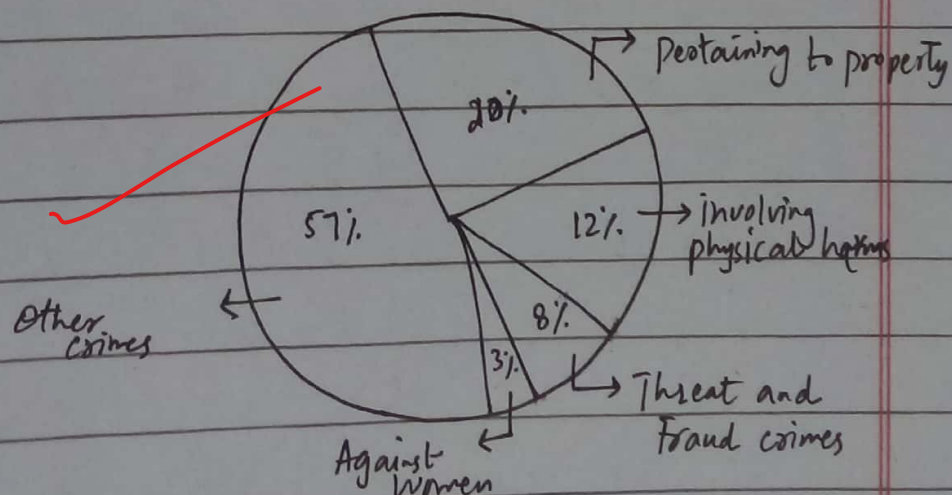 Pertaining to property
20%
57%
12%
involving
physical harms
Other
crimes
8%
3%
Threat and
Fraud crimes
Against
Women